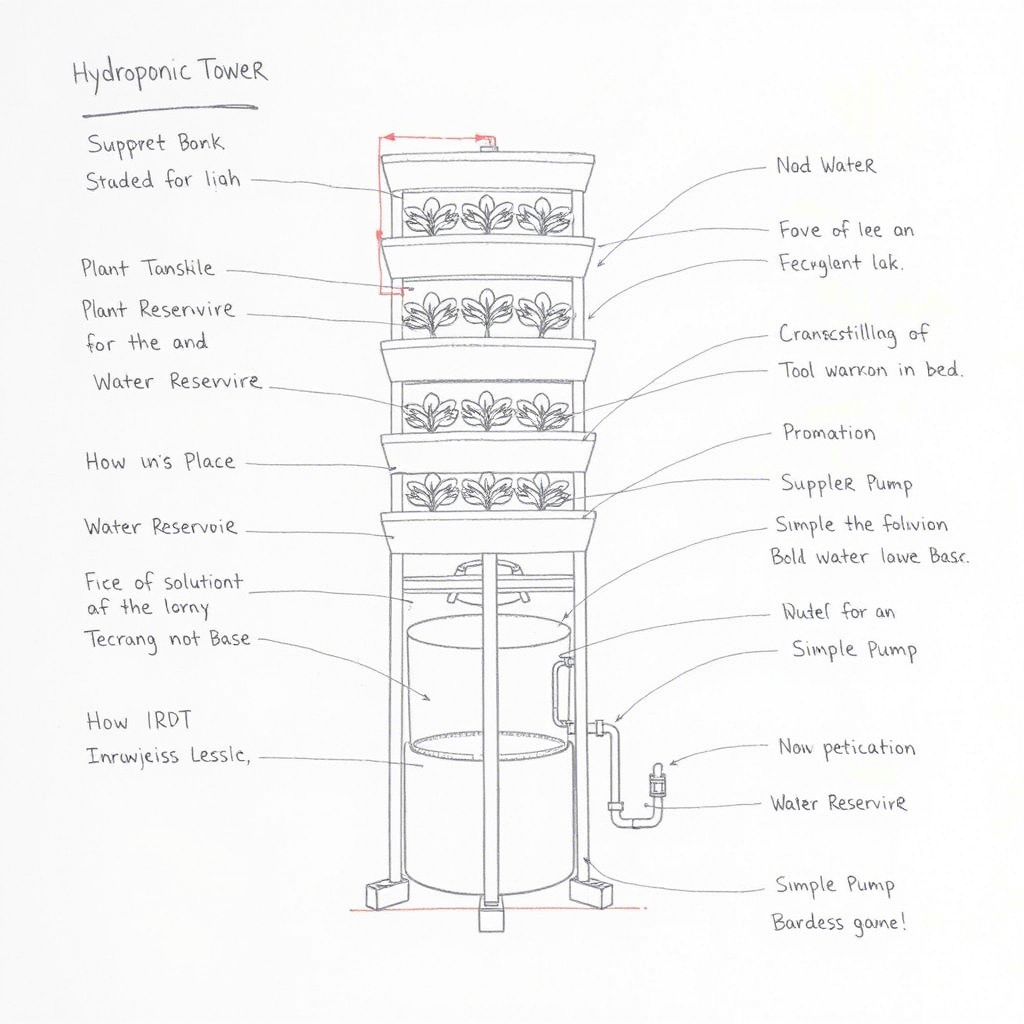 Hydroponic Tower
Suppret Bonk
Studed for liah
Plant Tanskile
Plant Reservire
for the and
Water Reservire
How in's Place
Water Reservoie
Fice of solutiont
af the lorny
Tecrang not Base
How IRDT
Inrwjeiss Lesslc,
Nod Water
Fove of lee an
Fecrglent lak.
Cranscstilling of
Tool warkon in bed.
Promation
Suppler Pump
Simple the folivion
Bold water lawe Basc.
for an
Simple Pump
Now petication
Water Reservire
Simple Pump
Bardess game!